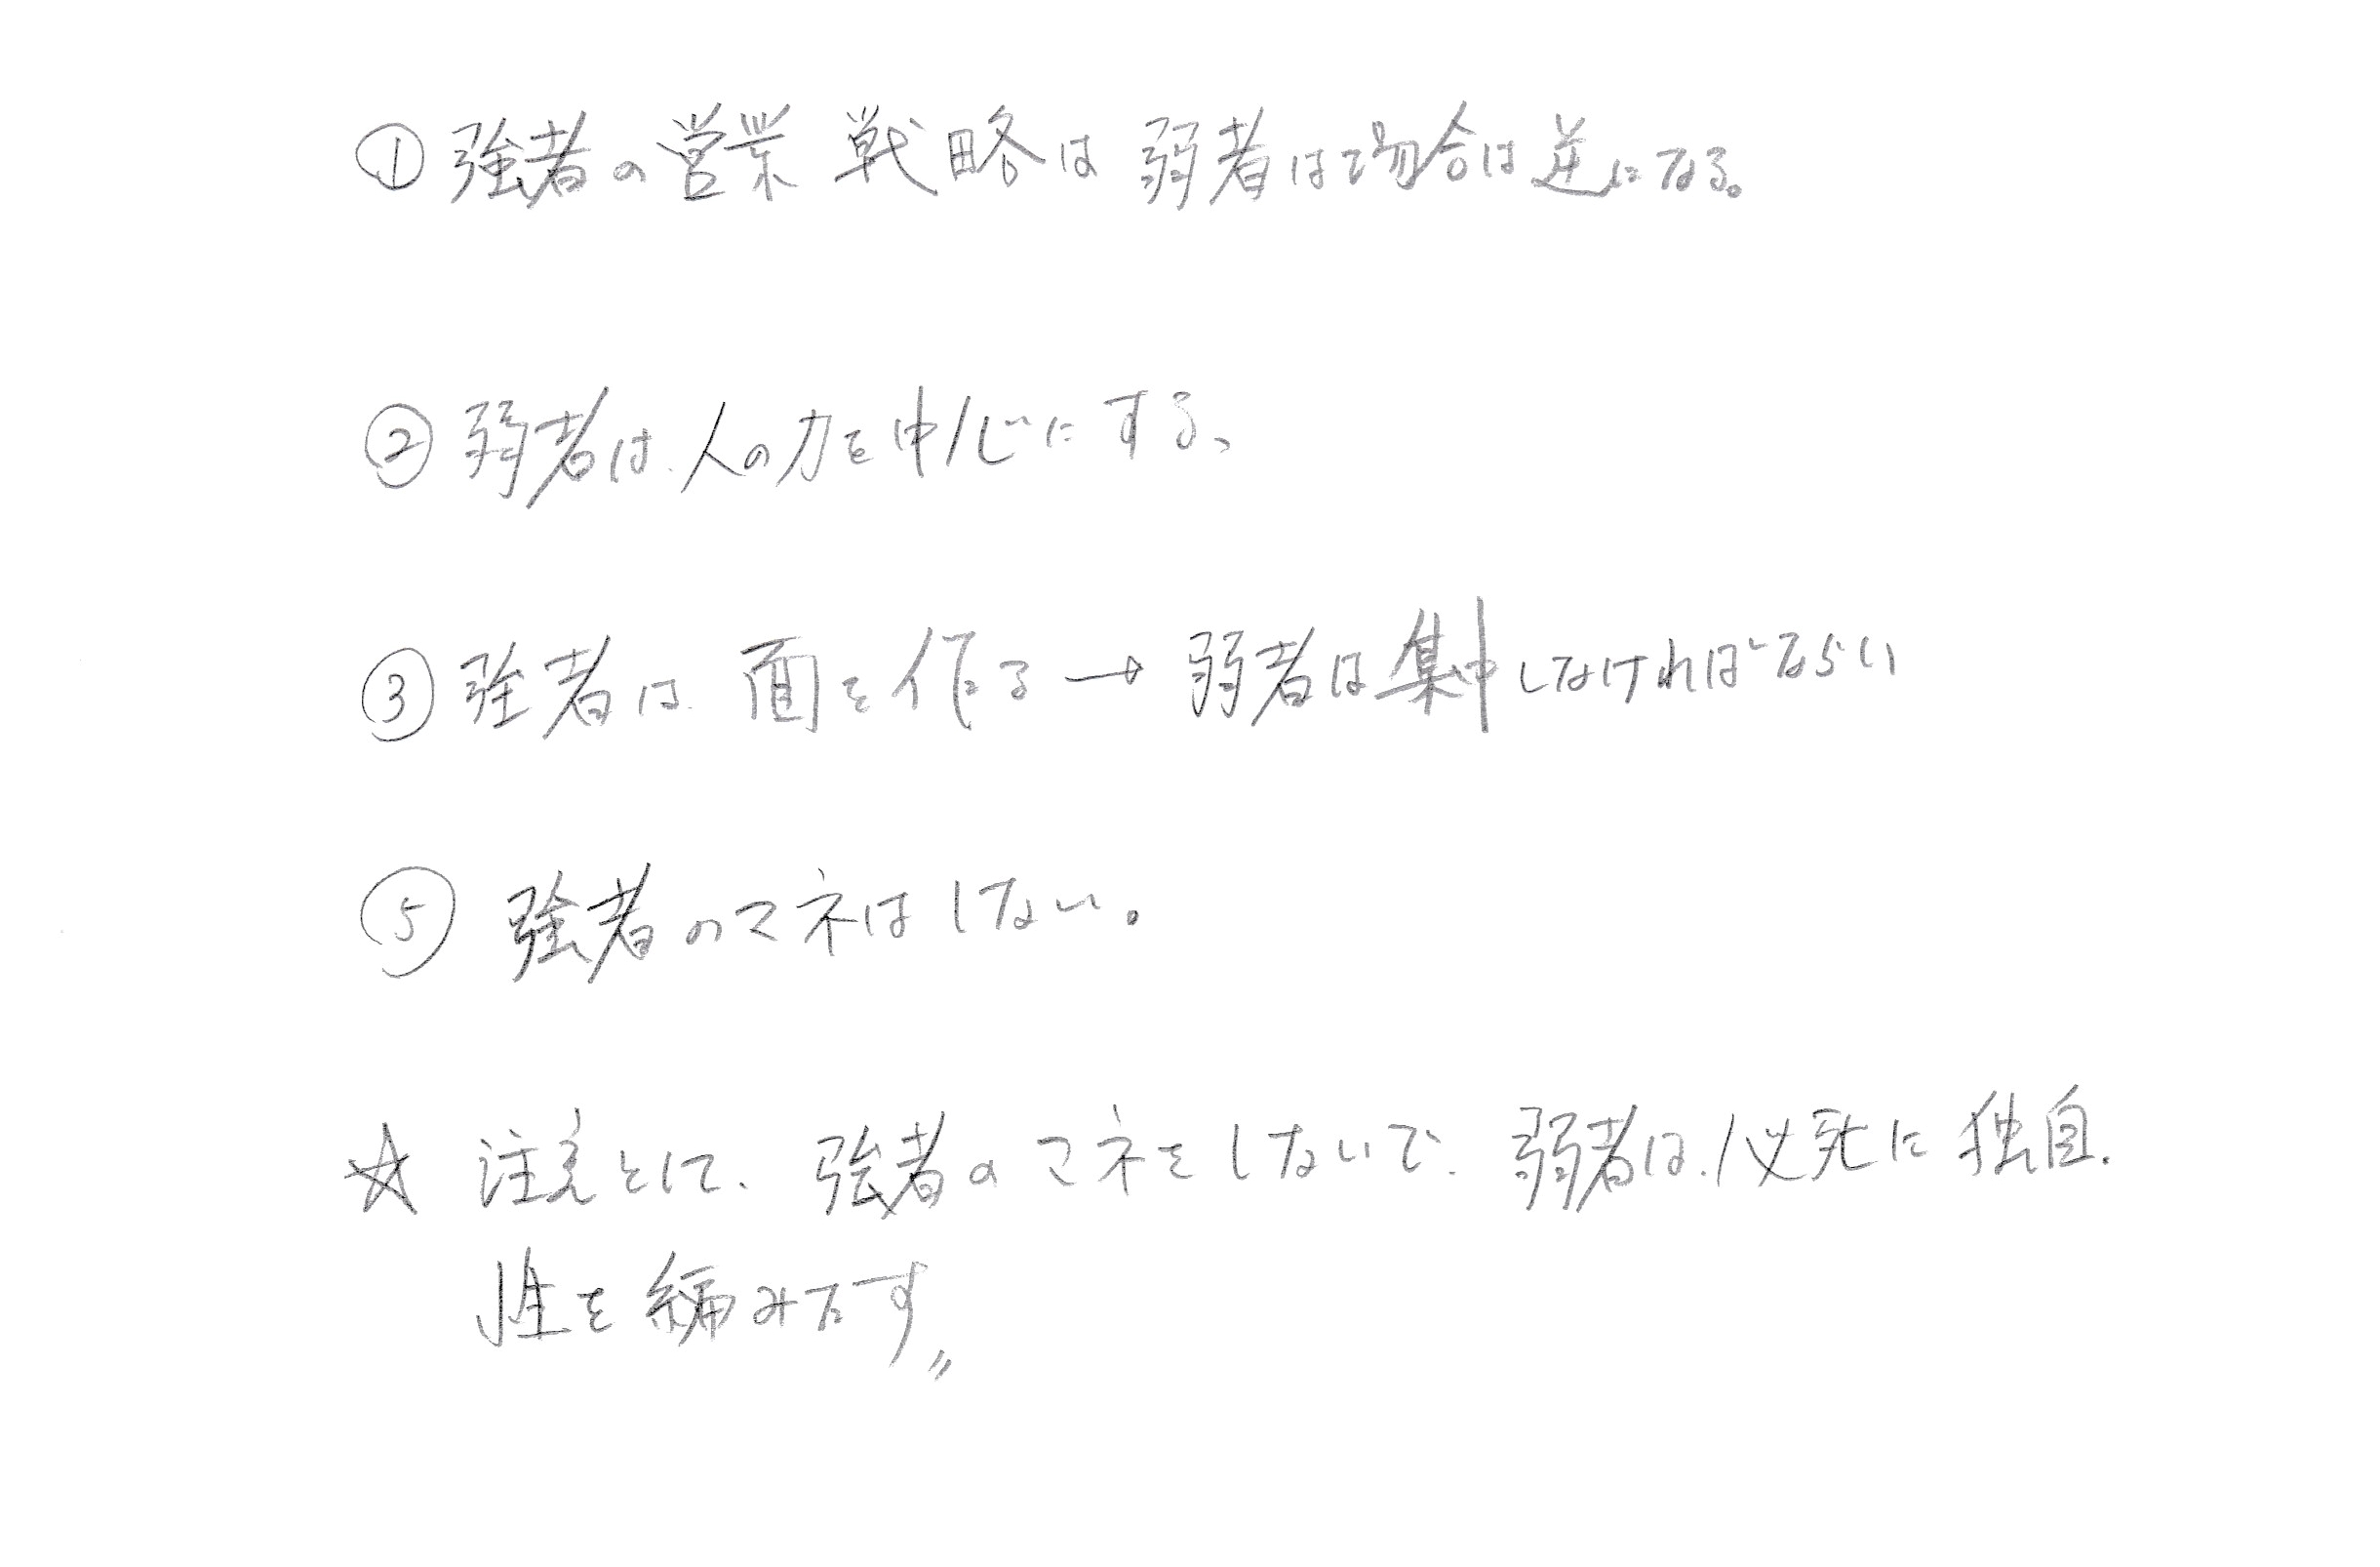 ①強者の営業戦略は弱者は場合は逆になる。
②弱者は.人の力を中心にする、
③強者は.面を作る→弱者は集中しなければならい
⑤強者のマネはしない。
☆注意として、強者のマネをしないで.弱者は.必死に独自.
性を編み出す〃